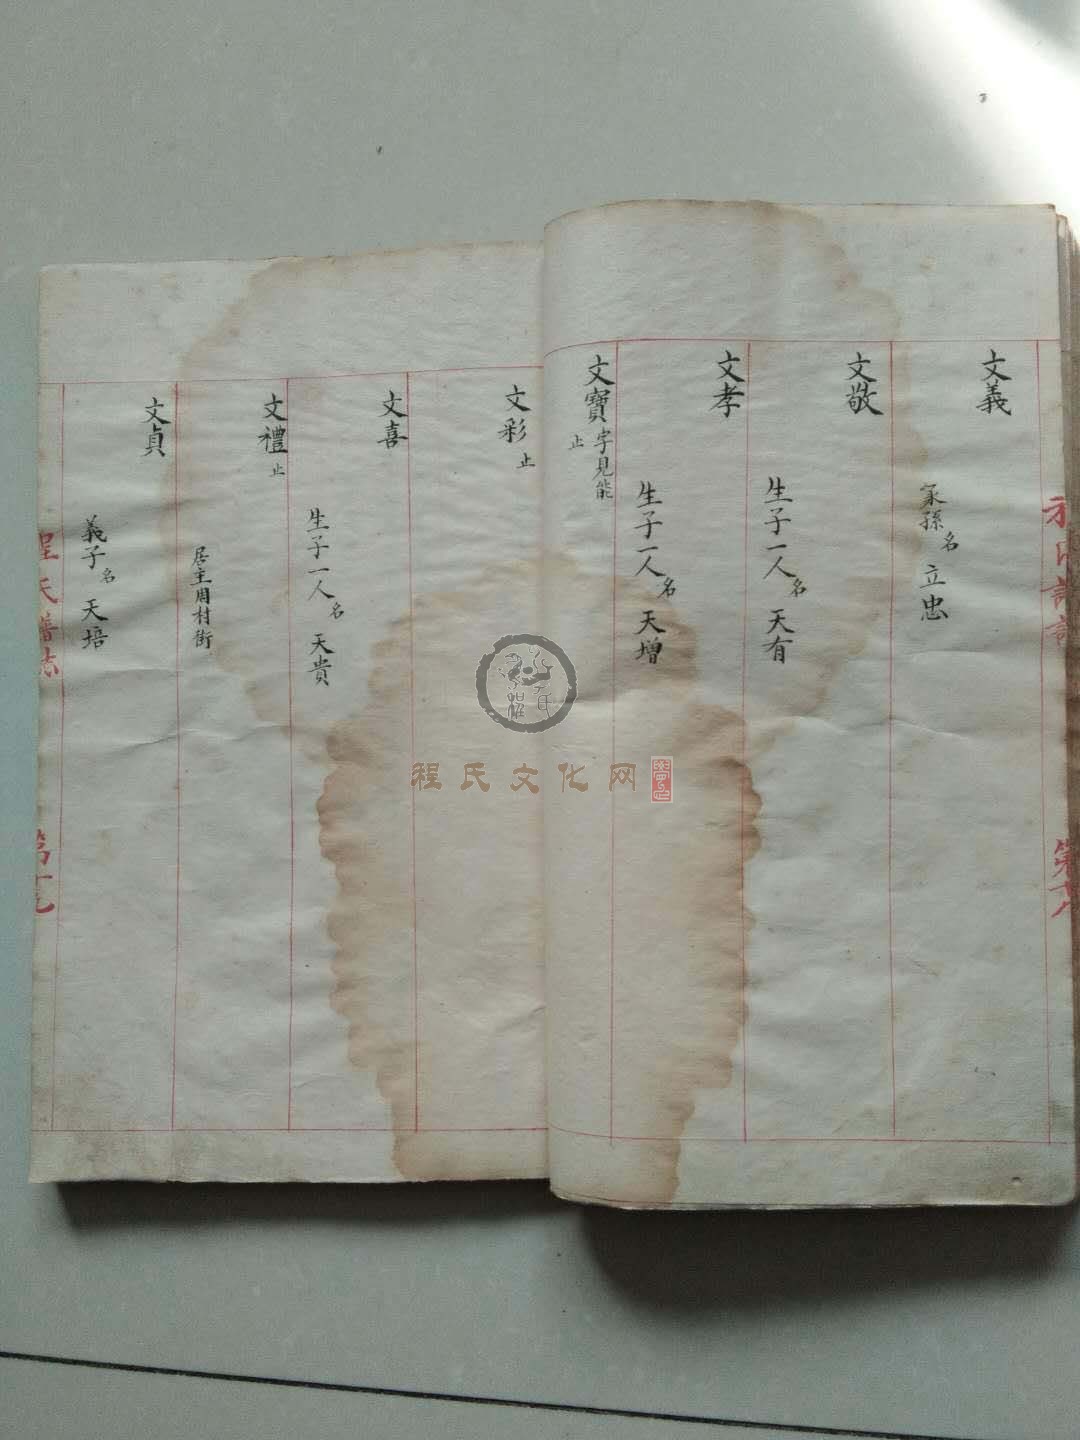 文義
孫名立忠
文敬
生子一人名天有
文孝
生子一人名天增
文寶字見能
止
文彩止
文喜
生子一人名天貴
文禮止
居主周村街
文貞
義子名天培
程氏譜志
第十九
第十八
程氏文化网